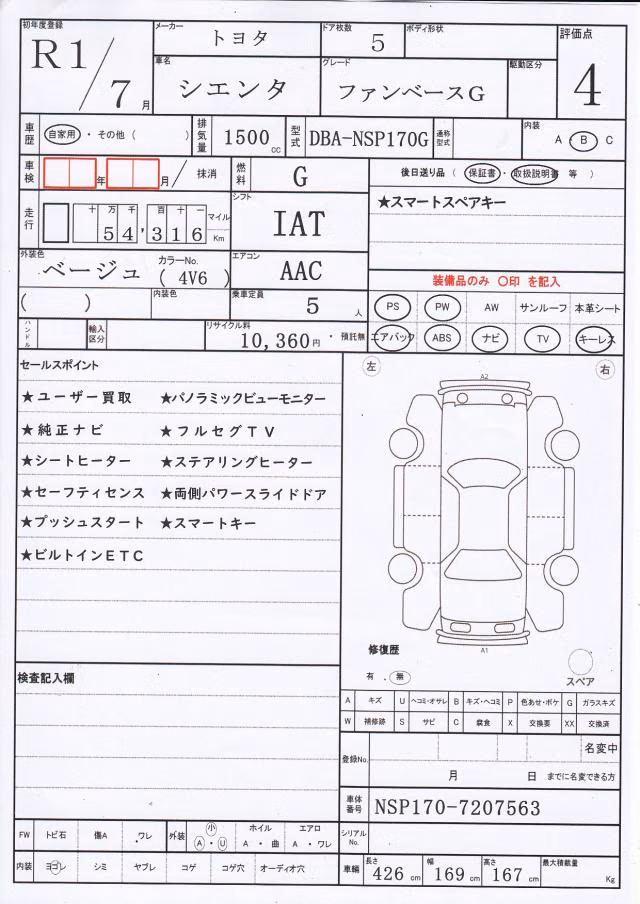 初年度登録 R1/7月
メーカー トヨタ ドア枚数 5 ボディ形状
評価点 4
車名 シエンタ グレード ファンベースG 駆動区分
車歴 自家用・その他( ) 排気量 1500cc 型式 DBA-NSP170G 通称型式 内装 A・B C
車検 年 月/ 抹消 燃料 G 後日送り品(保証書・取扱説明書 等)
★スマートスペアキー
走行 十万千百十一 54,316 マイル Km シフト IAT
外装色 ベージュ カラーNo. (4V6) エアコン AAC
装備品のみ 〇印 を記入
( ) 内装色 乗車定員 5人
PS PW AW サンルーフ 本革シート
ハンドル 輸入区分 リサイクル料 10,360円・預託無
エアバック ABS ナビ TV キーレス
セールスポイント 左 右
★ユーザー買取 ★パノラミックビューモニター
★純正ナビ ★フルセグTV
★シートヒーター ★ステアリングヒーター
★セーフティセンス ★両側パワースライドドア
★プッシュスタート ★スマートキー
★ビルトインETC
A2
A1
修復歴
有・無 スペア
検査記入欄
A キズ U ヘコミ・オサレ B キズ・ヘコミ P 色あせ・ボケ G ガラスキズ
W 補修跡 S サビ C 腐食 X 交換要 XX 交換済
登録No. 名変中
月 日 までに名変できる方
車体番号 NSP170-7207563
FW トビ石 傷A ワレ 外装 小 A・U ホイル A・曲 エアロ A・ワレ シリアルNo.
内装 ヨゴレ シミ ヤブレ コゲ コゲ穴 オーディオ穴 車輛 長さ 426cm 幅 169cm 高さ 167cm 最大積載量 Kg